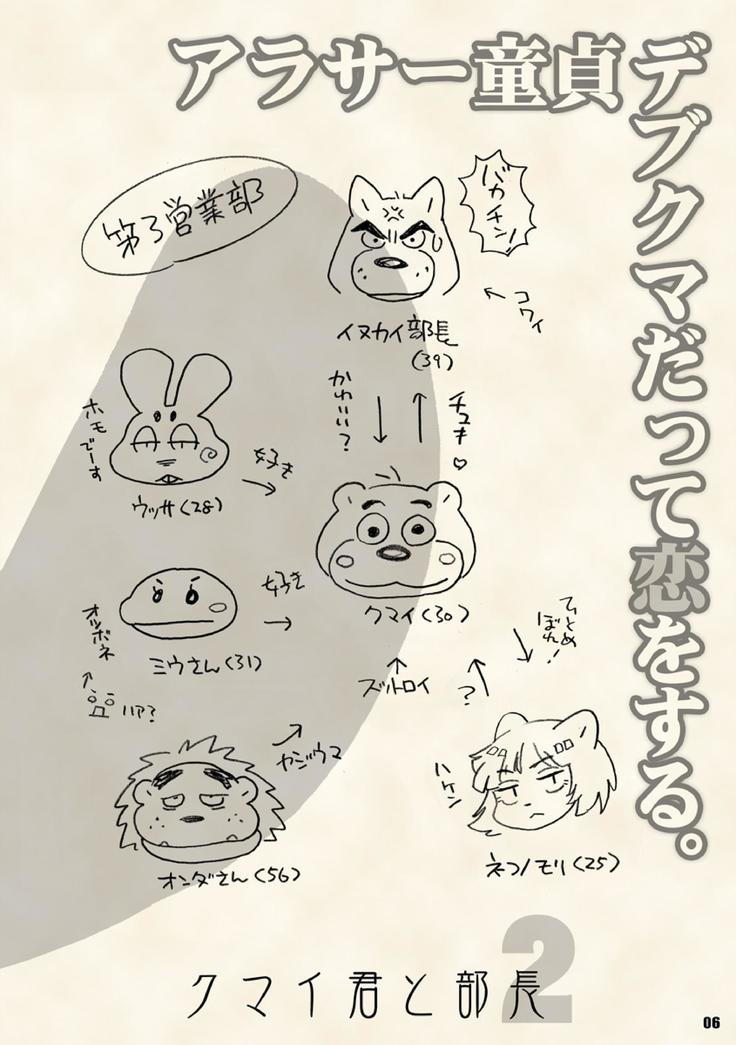 アラサー童貞デブクマだって恋をする。
第3営業部
バカチン!
コワイ
イヌカイ部長
(39)
かわいい?
チュキ♡
ホモでーす
好き
ウッサ(28)
クマイ(30)
好き
オツボネ
ミウさん(31)
ハア?
ひとめぼれ!
ズットロイ
?
ヤジウマ
ハケン
オンダさん(56)
ネコノモリ(25)
2
クマイ君と部長
06